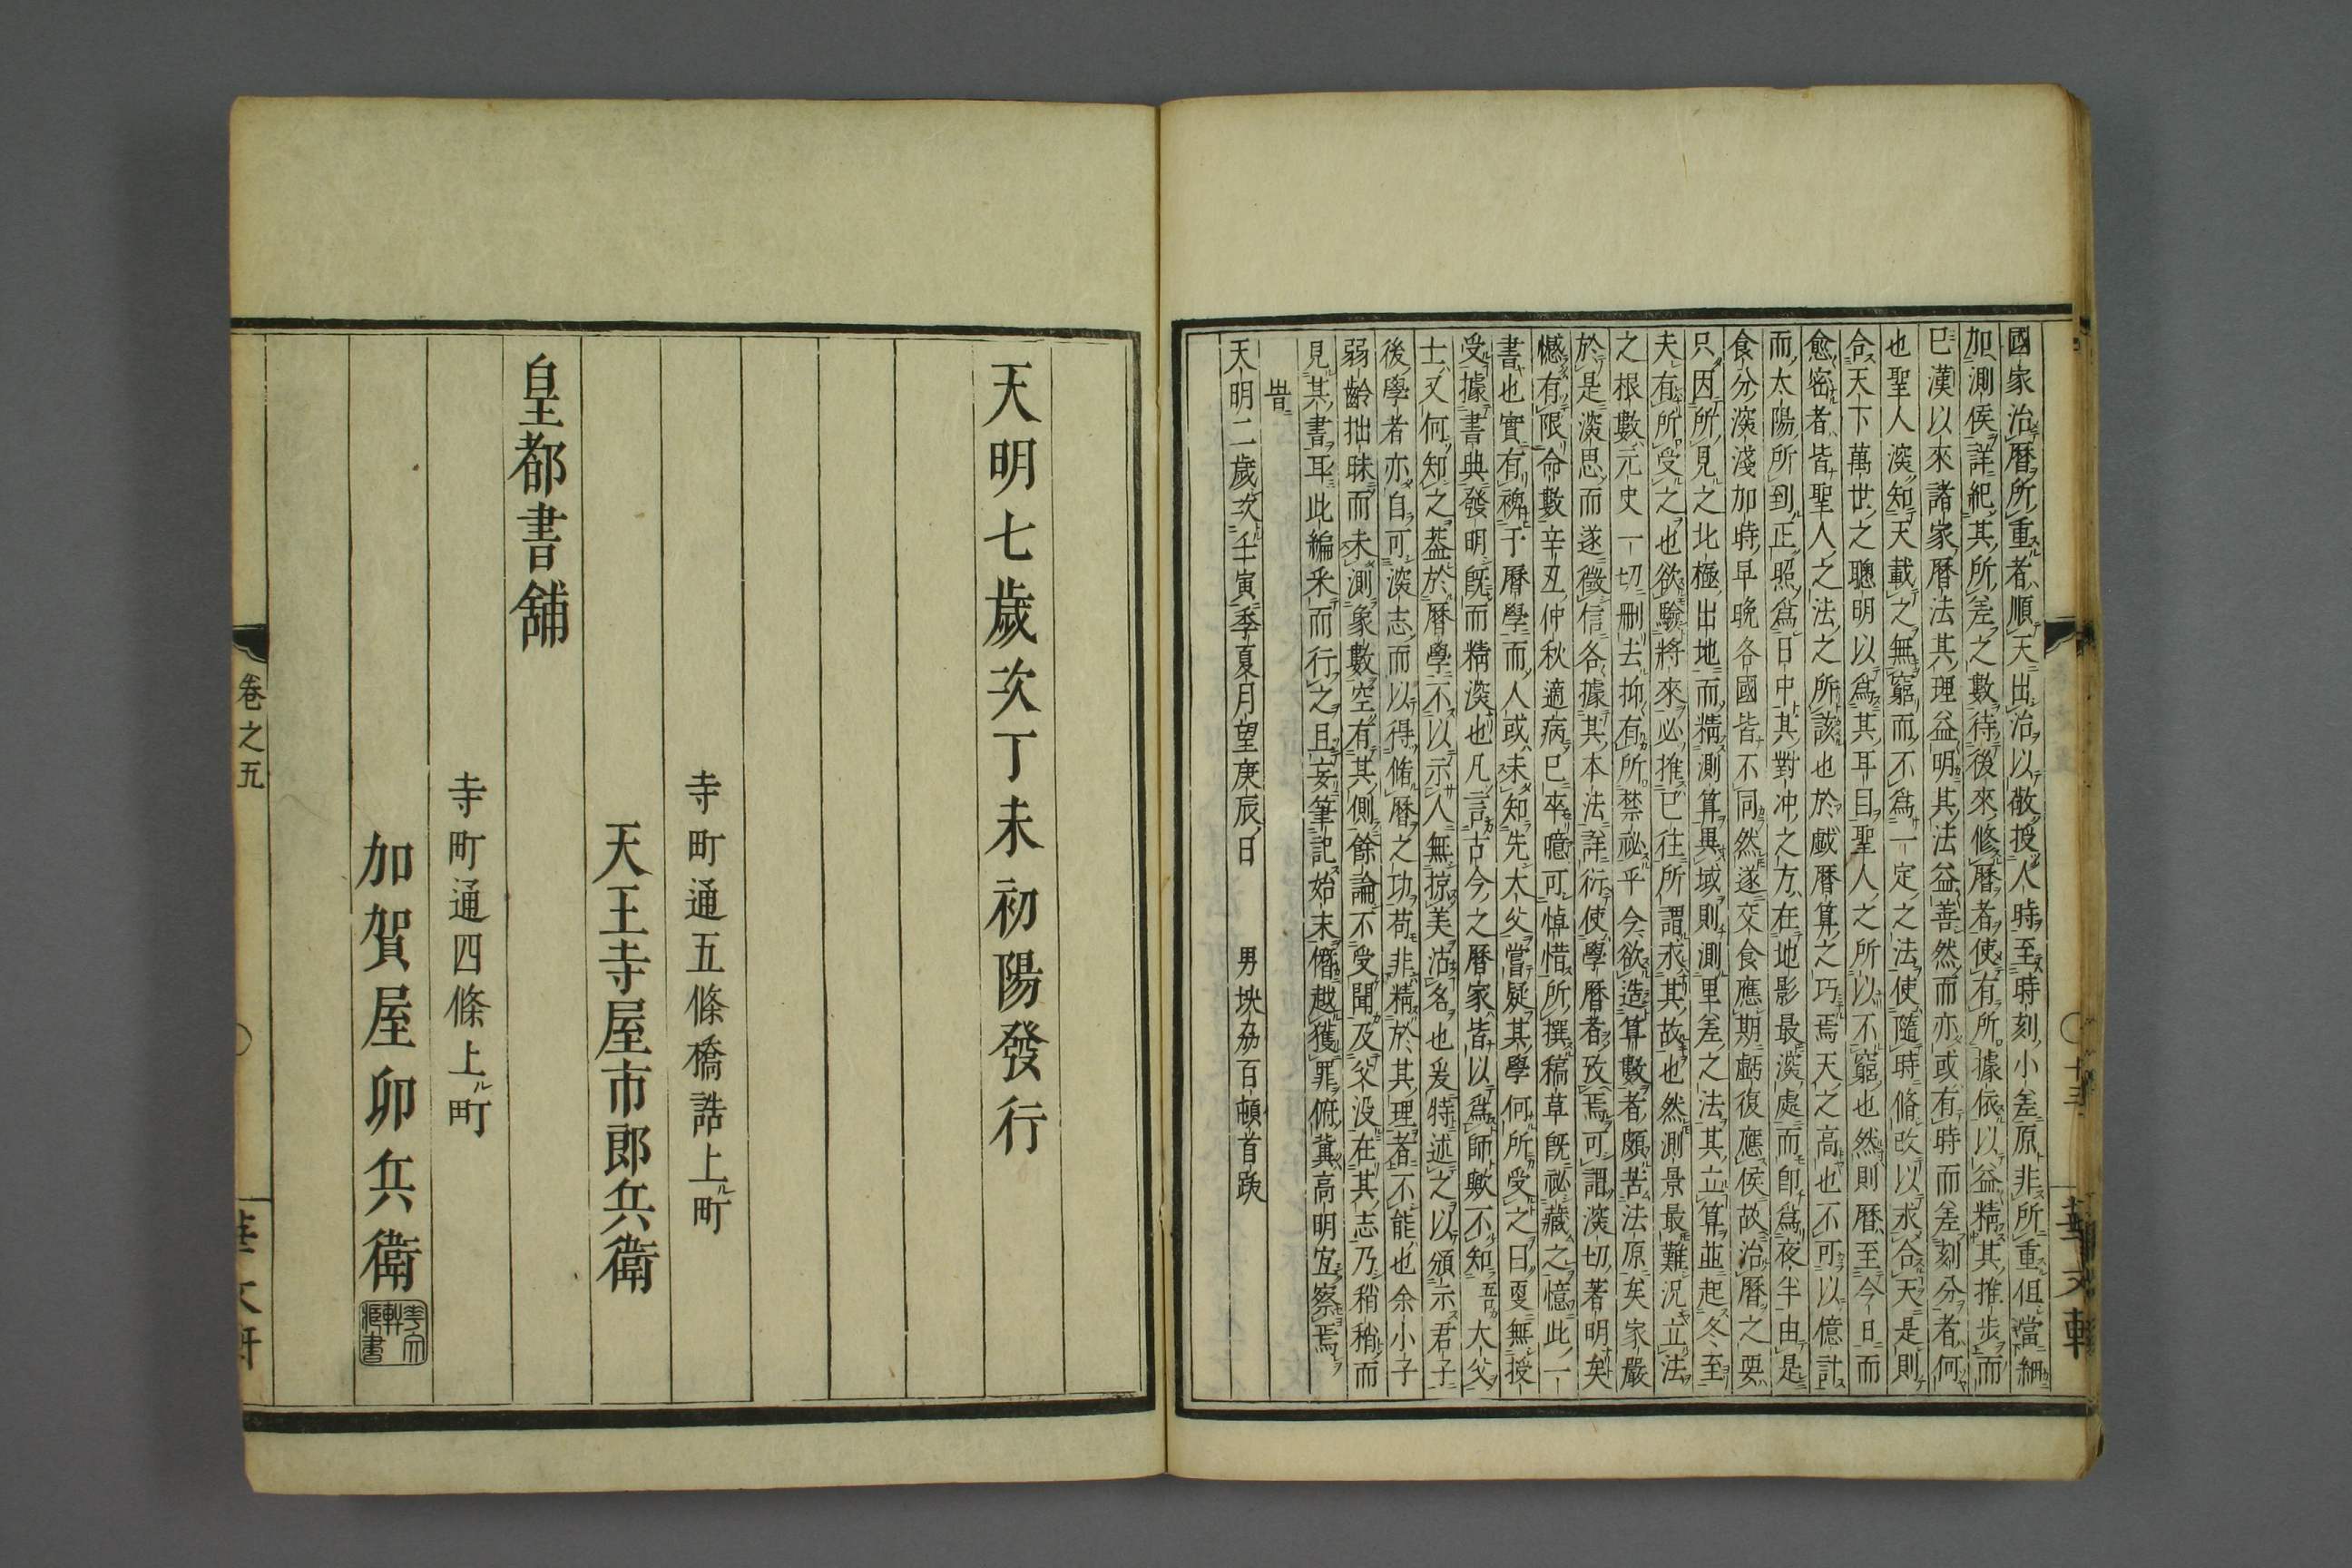 國家治曆所重者順天出治以敬授人時至時刻小差原非所重但當細
加測候詳紀其所差之數待後來修曆者使有所據依以益精其推步而
已漢以來諸家曆法其理益明其法益善然而亦或有時而差刻分者何
也聖人深知天載之無窮而不爲一定之法使隨時脩改以求合天是則
合天下萬世之聰明以爲其耳目聖人之所以不窮也然則曆至今日而
愈密者皆聖人之法之所該也於戲曆算之巧焉天之高也不可以億計
而太陽所到正照爲日中其對冲之方在地影最深處而卽爲夜半由是
食分深淺加時早晩各國皆不同然遂交食應期虧復應候故治曆之要
只因所見之北極出地而精測算異域則測里差之法其立算並起冬至
夫有所受之也欲驗將來必推已往所謂求其故也然測景最難況立法
之根數元史一切刪去抑有所禁祕乎今欲造算數者頗苦法原矣家嚴
於是深思而遂徵信各據其本法詳衍使學曆者攷焉可謂深切著明矣
憾有限命數辛丑仲秋適病已卒噫可悼惜所撰稿草旣祕藏之憶此一
書也實有裨于曆學而人或未知先大父嘗疑其學何所受之曰更無授
受據書典發明旣而精深也凡言古今之曆家皆以爲師歟不知吾大父
士又何知之蓋於曆學不以示人無掠美沽名也爰特述之以頒示君子
後學者亦自可深志而以得脩曆之功苟非精於其理者不能也余小子
弱齡拙昧而未測象數空有其側餘論不受聞及父没在其志乃稍稍而
見其書耳此編釆而行之且妄筆記始末僭越獲罪俯冀高明宜察焉
旹
天明二歲次壬寅季夏月望庚辰日　男 百頓首跋
十三
華文軒
天明七歲次丁未初陽發行
寺町通五條橋詰上ル町
天王寺屋市郎兵衛
皇都書舗
寺町通四條上ル町
加賀屋卯兵衛
華文軒藏書
卷之五
華文軒